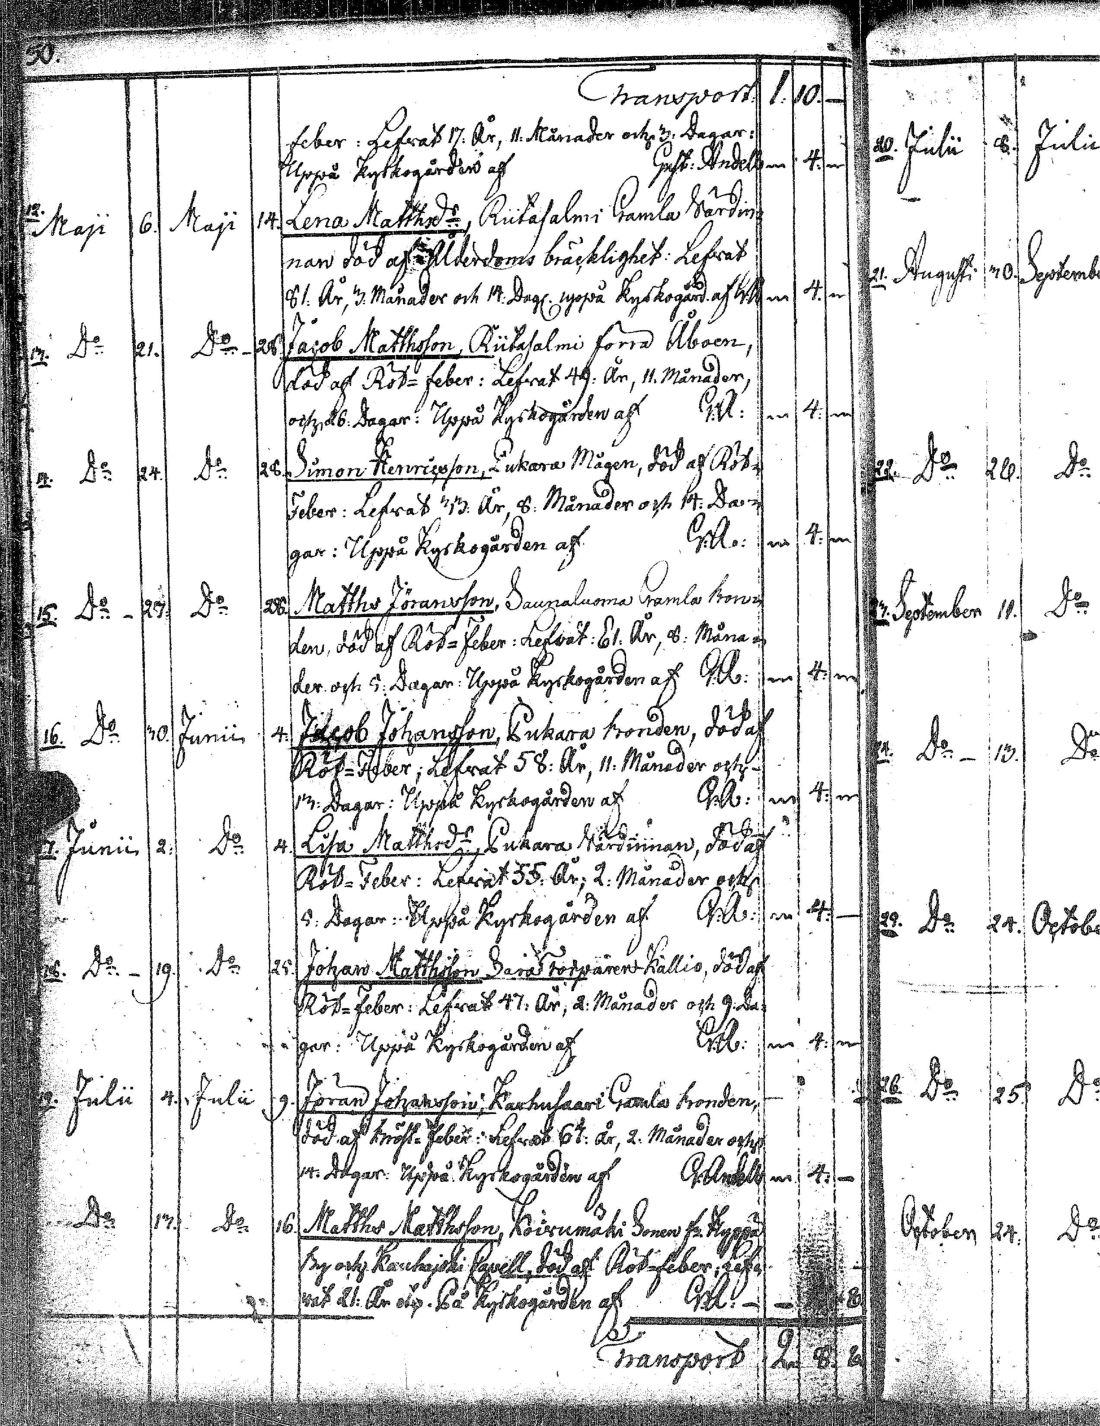 50.
Transport. 1. 10. —
feber: Lefvat 17: År, 11: Månader och 3: Dagar:
Uppå Kyrkogården af Gust: Andell — 4. —
12. Maji 6. Maji 14. Lena Matthsd:r, Riitasalmi Gamla Värdin=
nan död af Ålderdoms bräcklighet: Lefvat
81. År, 3. Månader och 14. Dag. uppå Kyrkogård. af — 4. —
13. D:o 21. D:o 28. Jacob Matthsson, Riitasalmi förra Åboen,
död af Röt=feber: Lefvat 49: År, 11. Månader,
och 26. Dagar: Uppå Kyrkogården af G:A: — 4: —
14. D:o 24. D:o 28. Simon Henricsson, Pukara Mågen, död af Röt=
Feber: Lefvat 33: År, 8: Månader och 14: Da=
gar: Uppå Kyrkogården af G:A: — 4: —
15. D:o — 27. D:o 28. Matths Jöransson, Saunaluoma Gamla Bon=
den, död af Röt=Feber: Lefvat: 61: År, 8: Måna=
der och 5: Dagar: Uppå Kyrkogården af G:A: — 4: —
16. D:o 30. Junii 4. Jacob Johansson, Pukara bonden, död af
Röt=Feber; Lefvat 58: År, 11: Månader och
13: Dagar: Uppå Kyrkogården af G:A: — 4: —
17. Junii 2. D:o 4. Lisa Matthsd:r, Pukara Värdinnan, död af
Röt=Feber: Lefvat 55: År; 2: Månader och
5: Dagar: Uppå Kyrkogården af G:A: — 4: —
18. D:o — 19. D:o 25. Johan Matthsson Torparen Kallio, död af
Röt=feber: Lefvat 47: År, 2: Månader och 9: Da=
gar: Uppå Kyrkogården af G:A: — 4: —
19. Julii 4. Julii 9. Jöran Johansson, Karhusaari Gamla bonden,
död af bröst=feber: Lefvat År, 2: Månader och
14: Dagar: Uppå Kyrkogården af G:Andell — 4: —
D:o 13. D:o 16. Matths Matthsson, Koirumäki Sonen
By och död af Röt=feber; Lef=
vat 21: År På Kyrkogården af G:A: — —
Transport 2. 8.
20. Julii 8. Julii
21. Augusti 30. Septemb
22. D:o 26. D:o
23. September 11. D:o
24. D:o — 13. D:o
D:o 24. Octobe
26. D:o 25. D:o
October 24. D:o